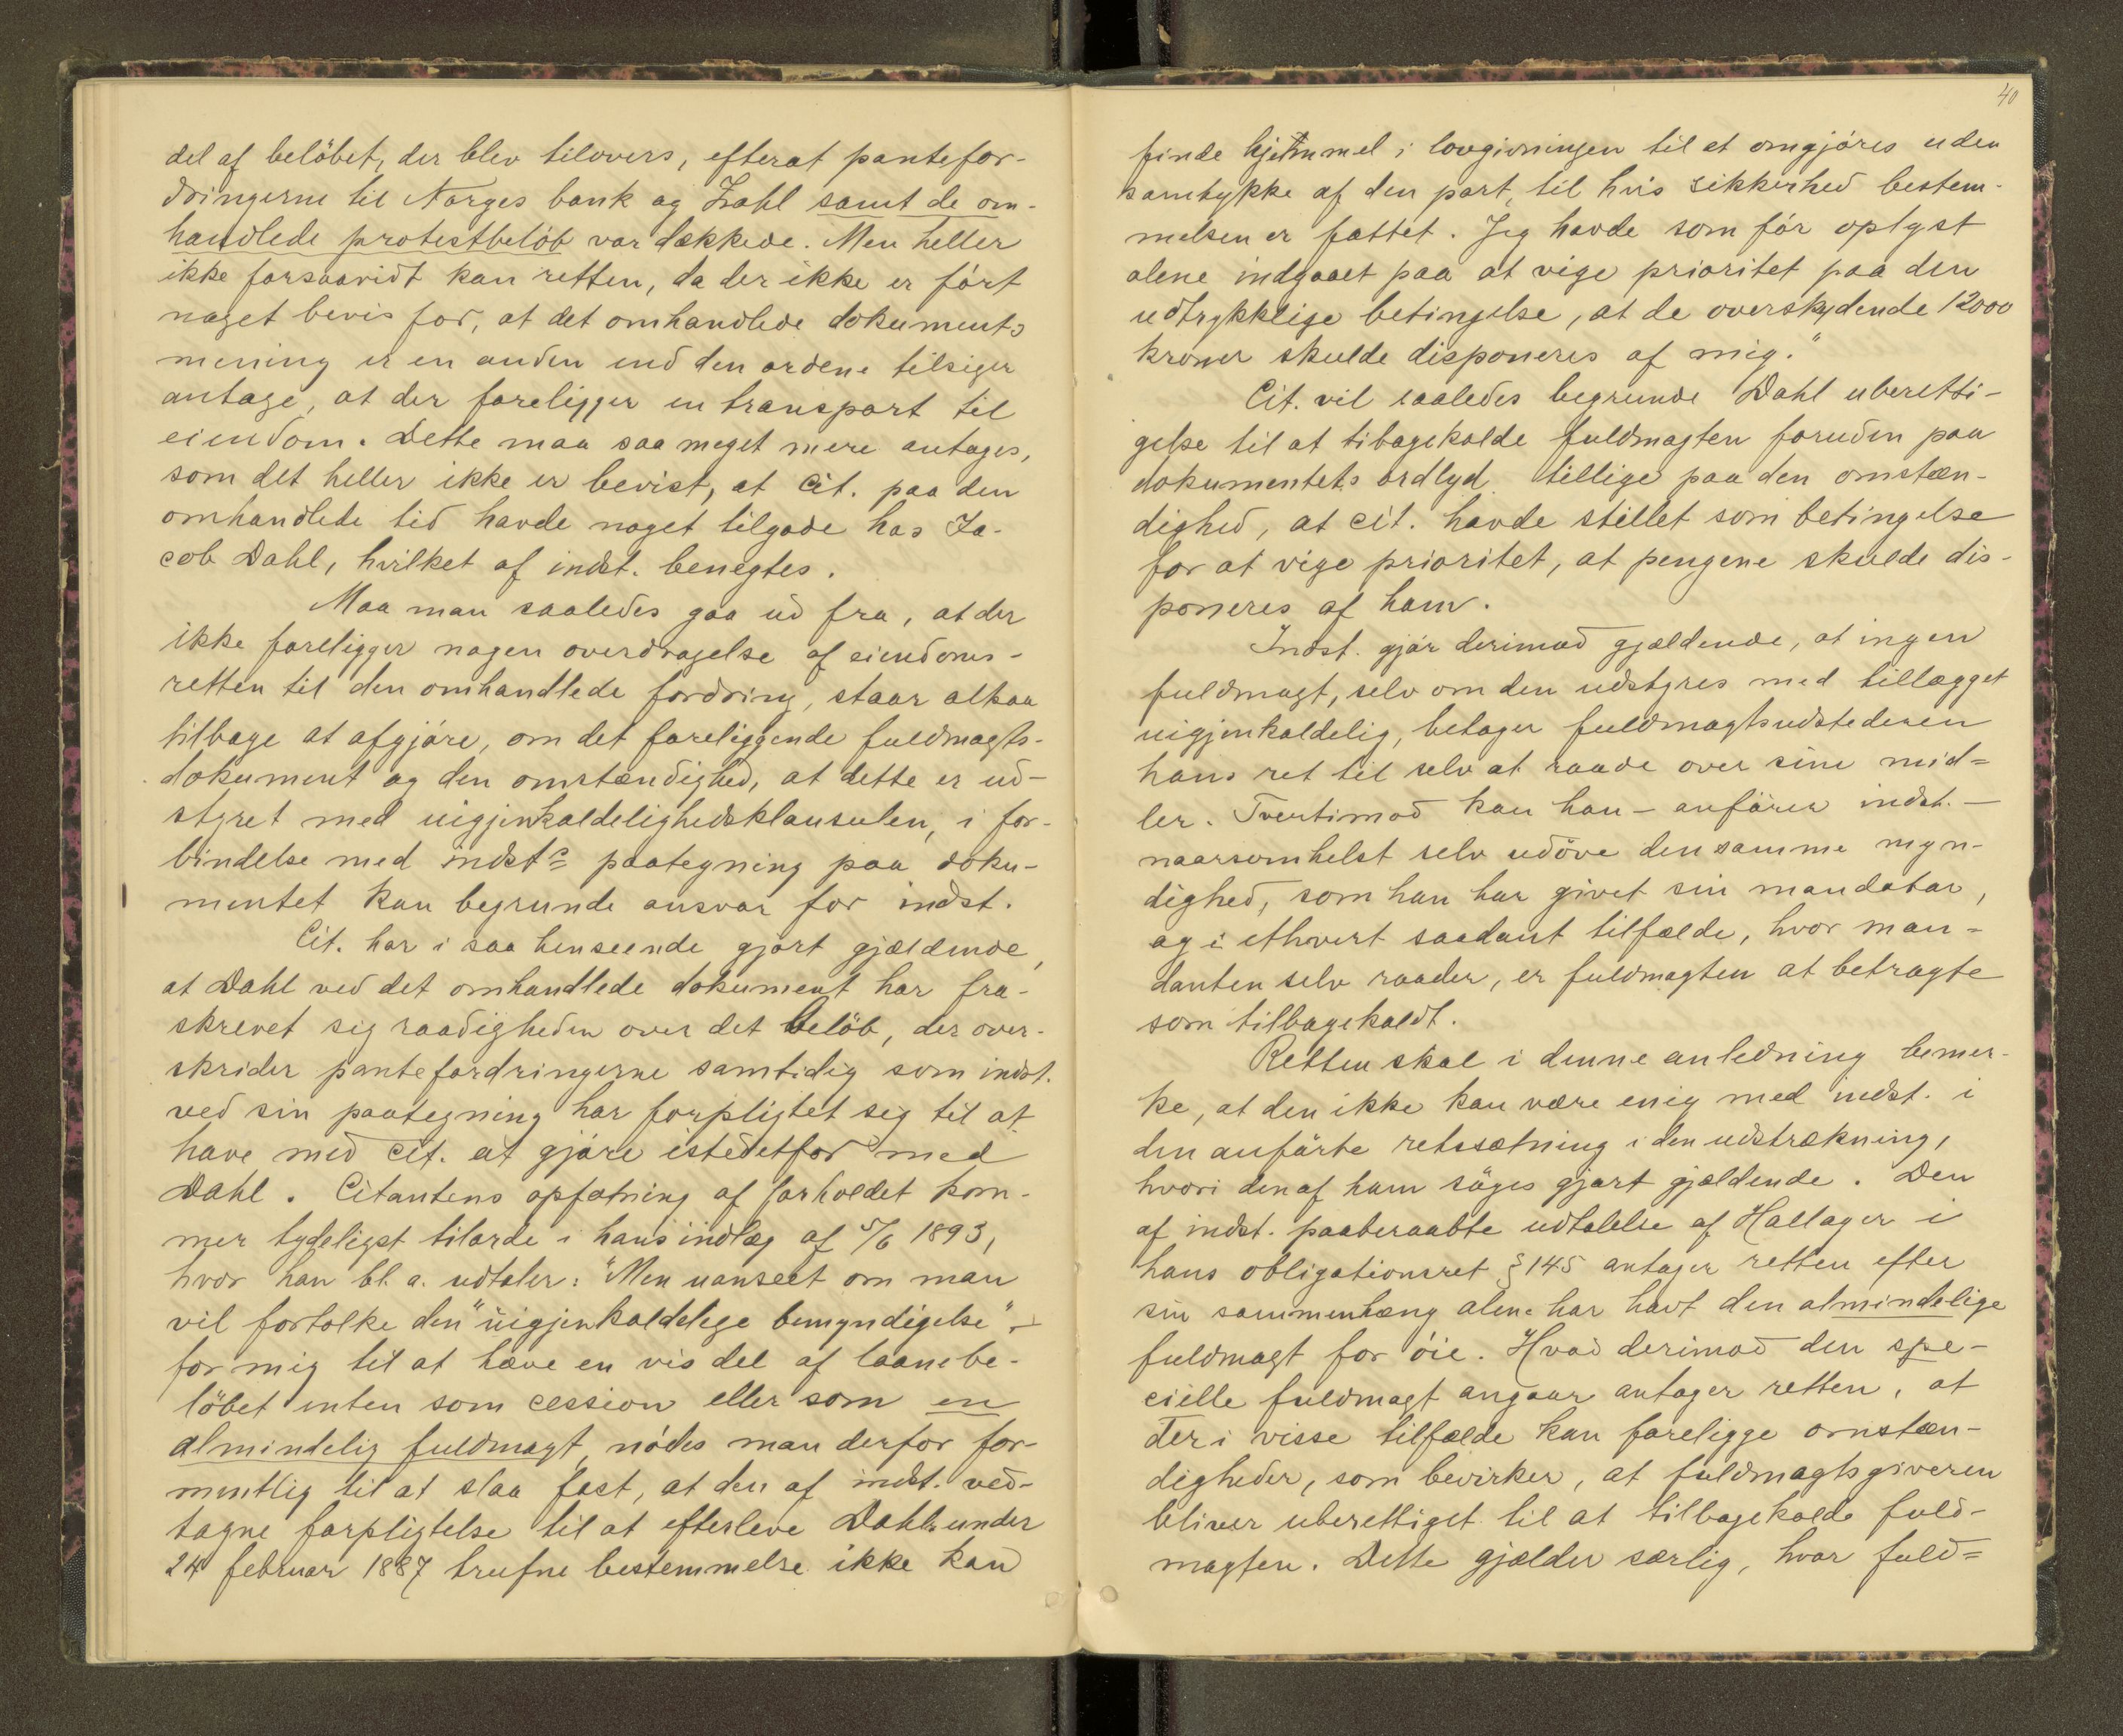 del af belöbet, der blev tilovers, efterat pantefor-
dringerne til Norges bank og Zahl samt de om-
handlede protestbelöb var dækkede. Men heller
ikke forsaavidt kan retten, da der ikke er fört
noget bevis for, at det omhandlede dokuments
mening er en anden end den ordene tilsiger
antage, at der foreligger en transport til
eiendom. Dette maa saa meget mere antages,
som det heller ikke er bevist, at Cit. paa den
omhandlede tid havde noget tilgode hos Ja-
cob Dahl, hvilket af indst. benegtes.
Maa man saaledes gaa ud fra, at der
ikke foreligger nogen overdragelse af eiendoms-
retten til den omhandlede fordring, staar altsaa
tilbage at afgjöre, om det foreliggende fuldmagts-
dokument og den omstændighed, at dette er ud-
styret med uigjenkaldelighedsklausulen, i for-
bindelse med indsts paategning paa doku-
mentet kan begrunde ansvar for indst.
Cit. har i saa henseende gjort gjældende,
at Dahl ved det omhandlede dokument har fra-
skrevet sig raadigheden over det belöb, der over-
skrider pantefordringerne samtidig som indst.
ved sin paategning har forpligtet sig til at
have med cit. at gjöre istedetfor med
Dahl. Citantens opfatning af forholdet kom-
mer tydeligst tilorde i hans indlæg af 5/6 1893,
hvor han bl. a. udtaler: "Men uanseet om man
vil fortolke den "uigjenkaldelige bemyndigelse" -
for mig til at hæve en vis del af laanebe-
löbet enten som cession eller som en
almindelig fuldmagt, nödes man derfor for-
mentlig til at slaa fast, at den af indst. ved-
tagne forpligtelse til at efterleve Dahls under
24 februar 1887 trufne bestemmelse ikke kan
40
finde hjemmel i lovgivningen til at omgjöres uden
samtykke af den part, til hvis sikkerhed bestem-
melsen er fattet. Jeg havde som för oplyst
alene indgaaet paa at vige prioritet paa den
udtrykkelige betingelse, at de overskydende 12000
kroner skulde disponeres af mig."
Cit. vil saaledes begrunde Dahl uberetti-
gelse til at tibagekalde fuldmagten foruden paa
dokumentets ordlyd tillige paa den omstæn-
dighed, at cit. havde stillet som betingelse
for at vige prioritet, at pengene skulde dis-
poneres af ham.
Indst. gjör derimod gjældende, at ingen
fuldmagt, selv om den udstyres med tillægget
uigjenkaldelig, betager fuldmagtsudstederen
hans ret til selv at raade over sine mid=
ler. Tvertimod kan han - anförer indst. -
naarsomhelst selv udöve den samme myn-
dighed, som han har givet sin mandatar,
og i ethvert saadant tilfælde, hvor man=
danten selv raader, er fuldmagten at betragte
som tilbagekaldt.
Retten skal i denne anledning bemer-
ke, at den ikke kan være enig med indst. i
den anförte retssætning i den udstrækning,
hvori den af ham söges gjort gjældende. Den
af indst. paaberaabte udtalelse af Hallager i
hans obligationsret § 145 antager retten efter
sin sammenhæng alene har havt den almindelige
fuldmagt for öie. Hvad derimod den spe-
cielle fuldmagt angaar antager retten, at
der i visse tilfælde kan foreligge omstæn-
digheder, som bevirker, at fuldmagtsgiveren
bliver uberettiget til at tilbagekalde fuld-
magten. Dette gjælder særlig, hvor fuld=